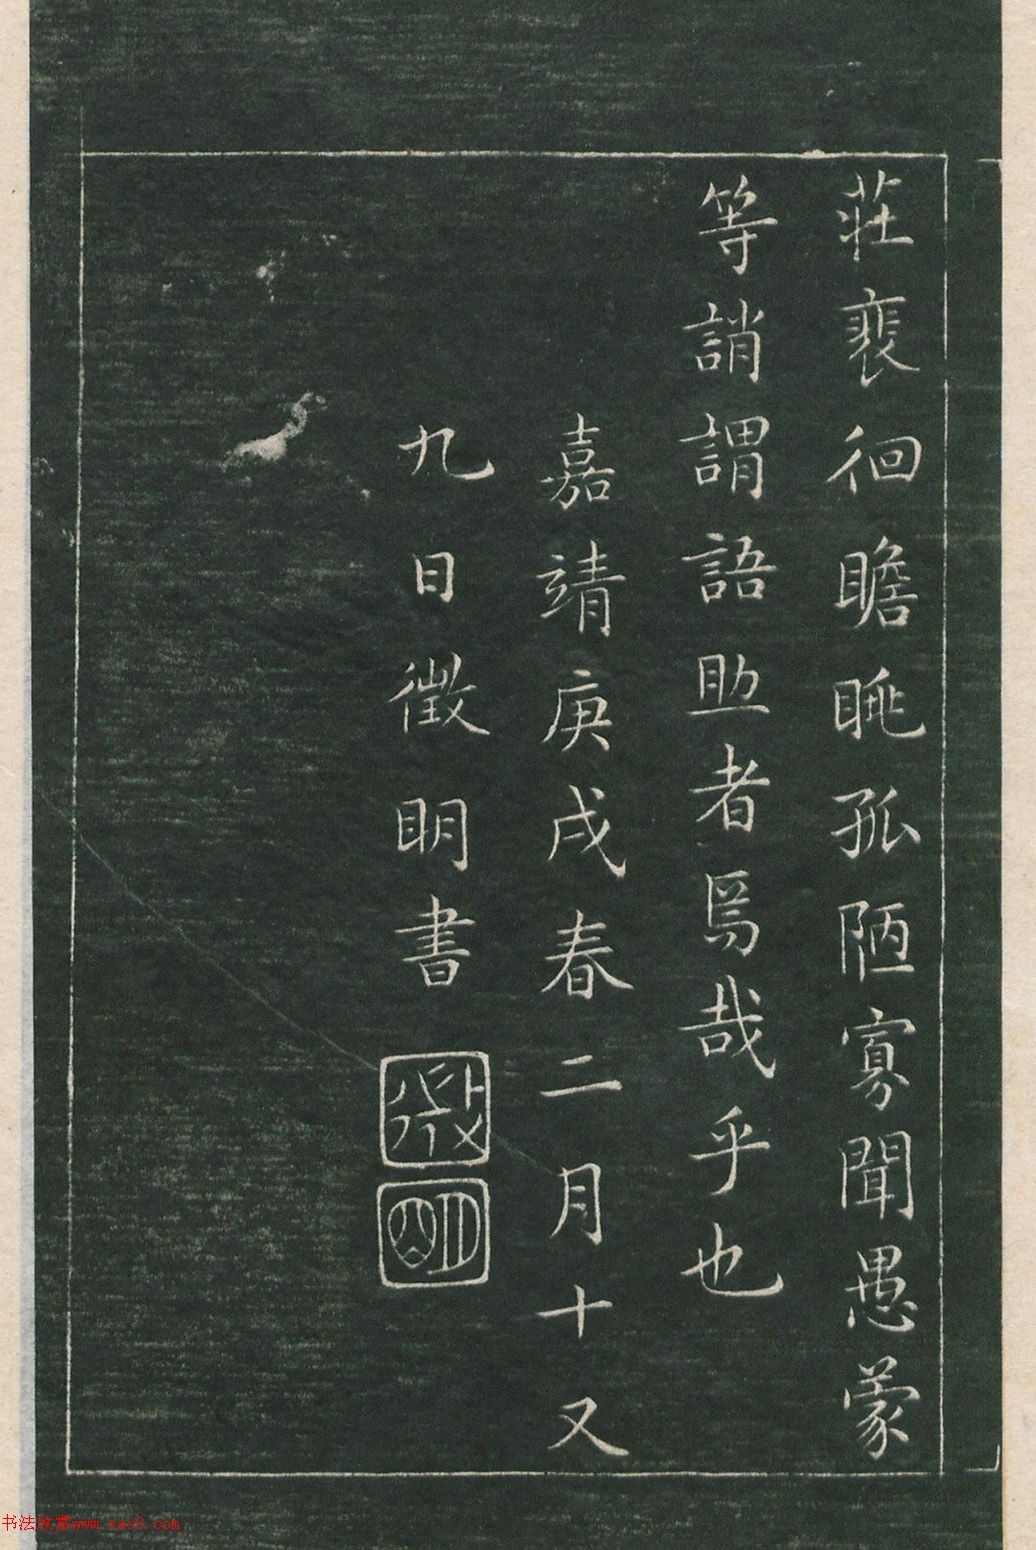 莊裵徊瞻眺孤陋寡聞愚蒙
等誚謂語助者焉哉乎也
嘉靖庚戌春二月十又
九日徵明書
徵
明
书法欣赏www.yac8.com